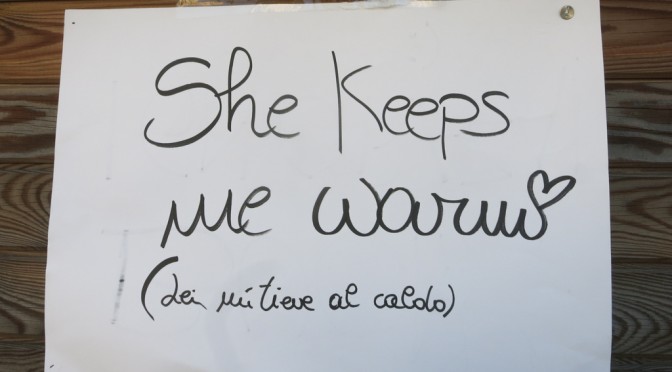 She Keeps
me warm
(Lei mi tiene al caldo)